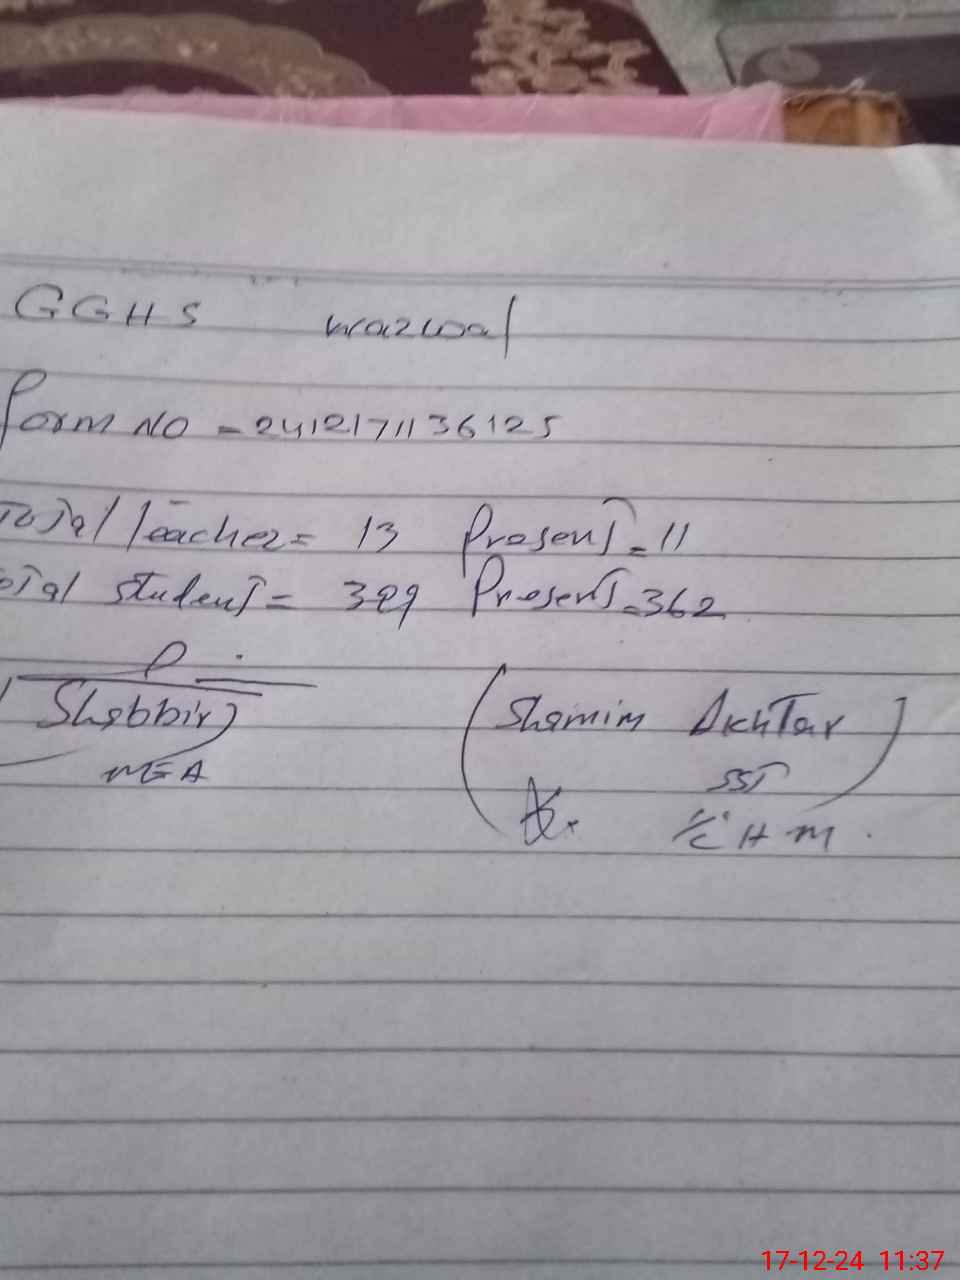 GGHS wazwal
Form NO = 2412171136125
Total Teacher = 13 Present = 11
Total student = 399 Present = 362
(Shabbir)
MEA
(Shamim Akhtar)
SST
I/C H M.
17-12-24 11:37